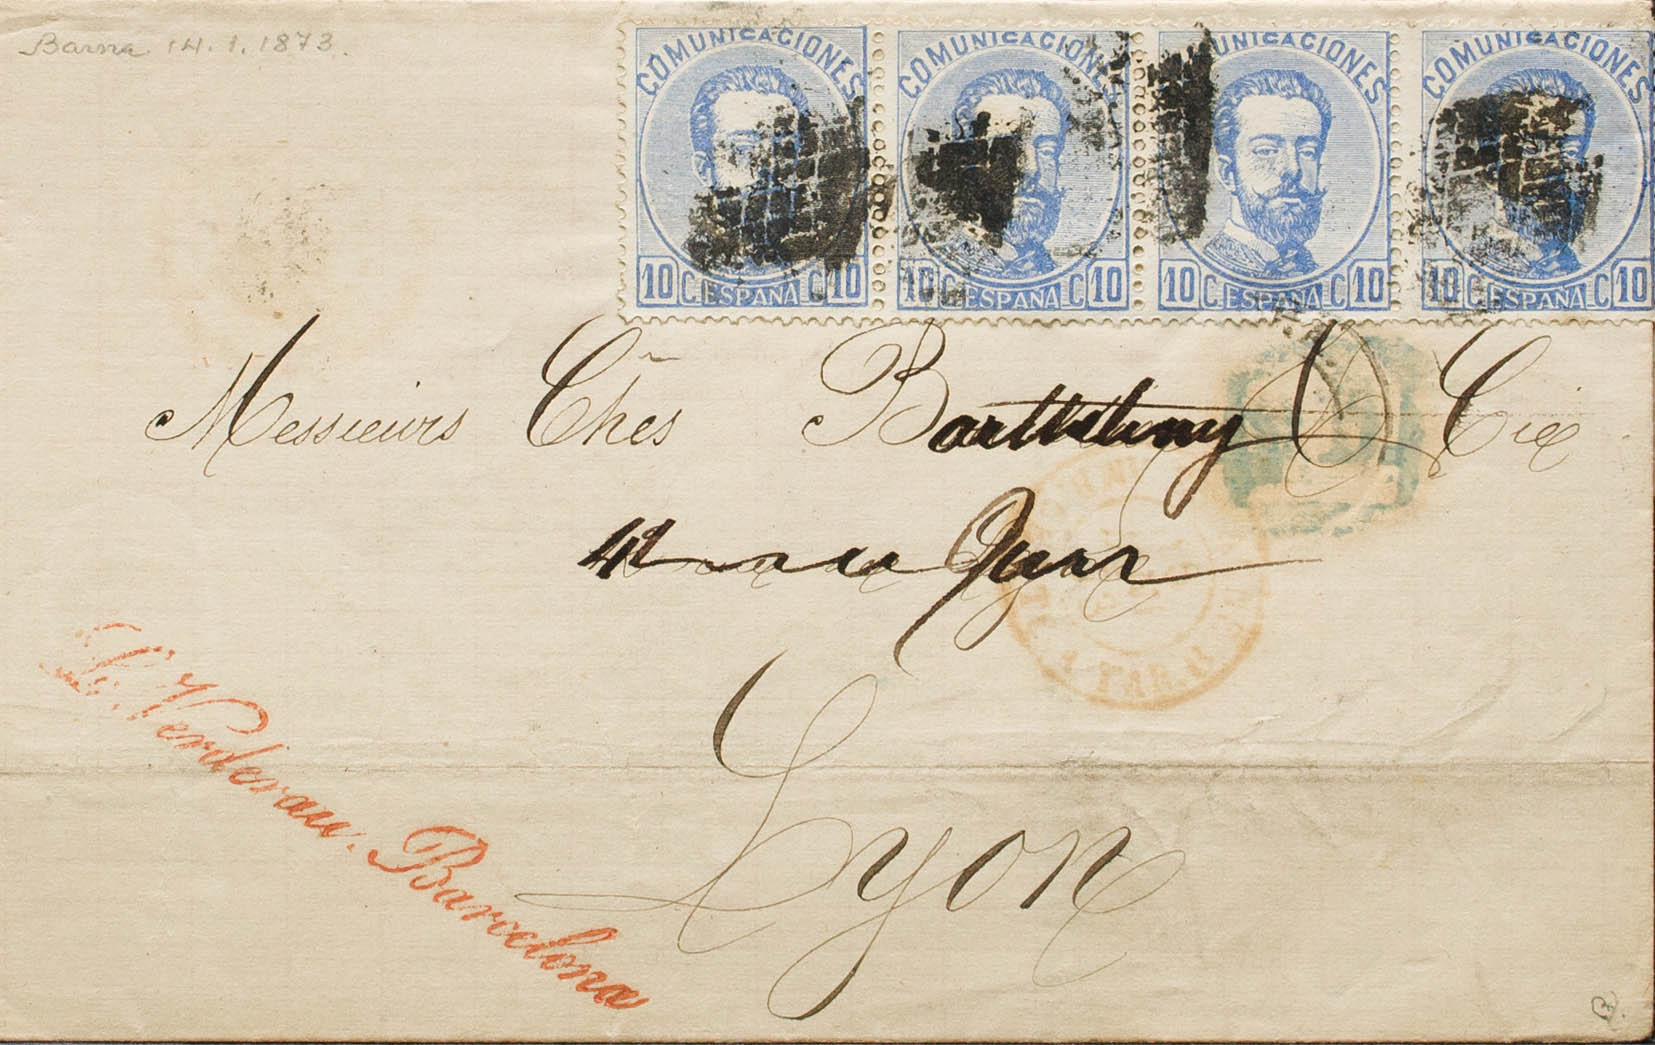 Barna 14.1.1873.
COMUNICACIONES COMUNICACIONES COMUNICACIONES COMUNICACIONES
10 C. ESPAÑA C 10 10 C. ESPAÑA C 10 10 C. ESPAÑA C 10 10 C. ESPAÑA C 10
Messieurs Chẽs Barthelemy & Cie
Lyon
Verderau. Barcelona